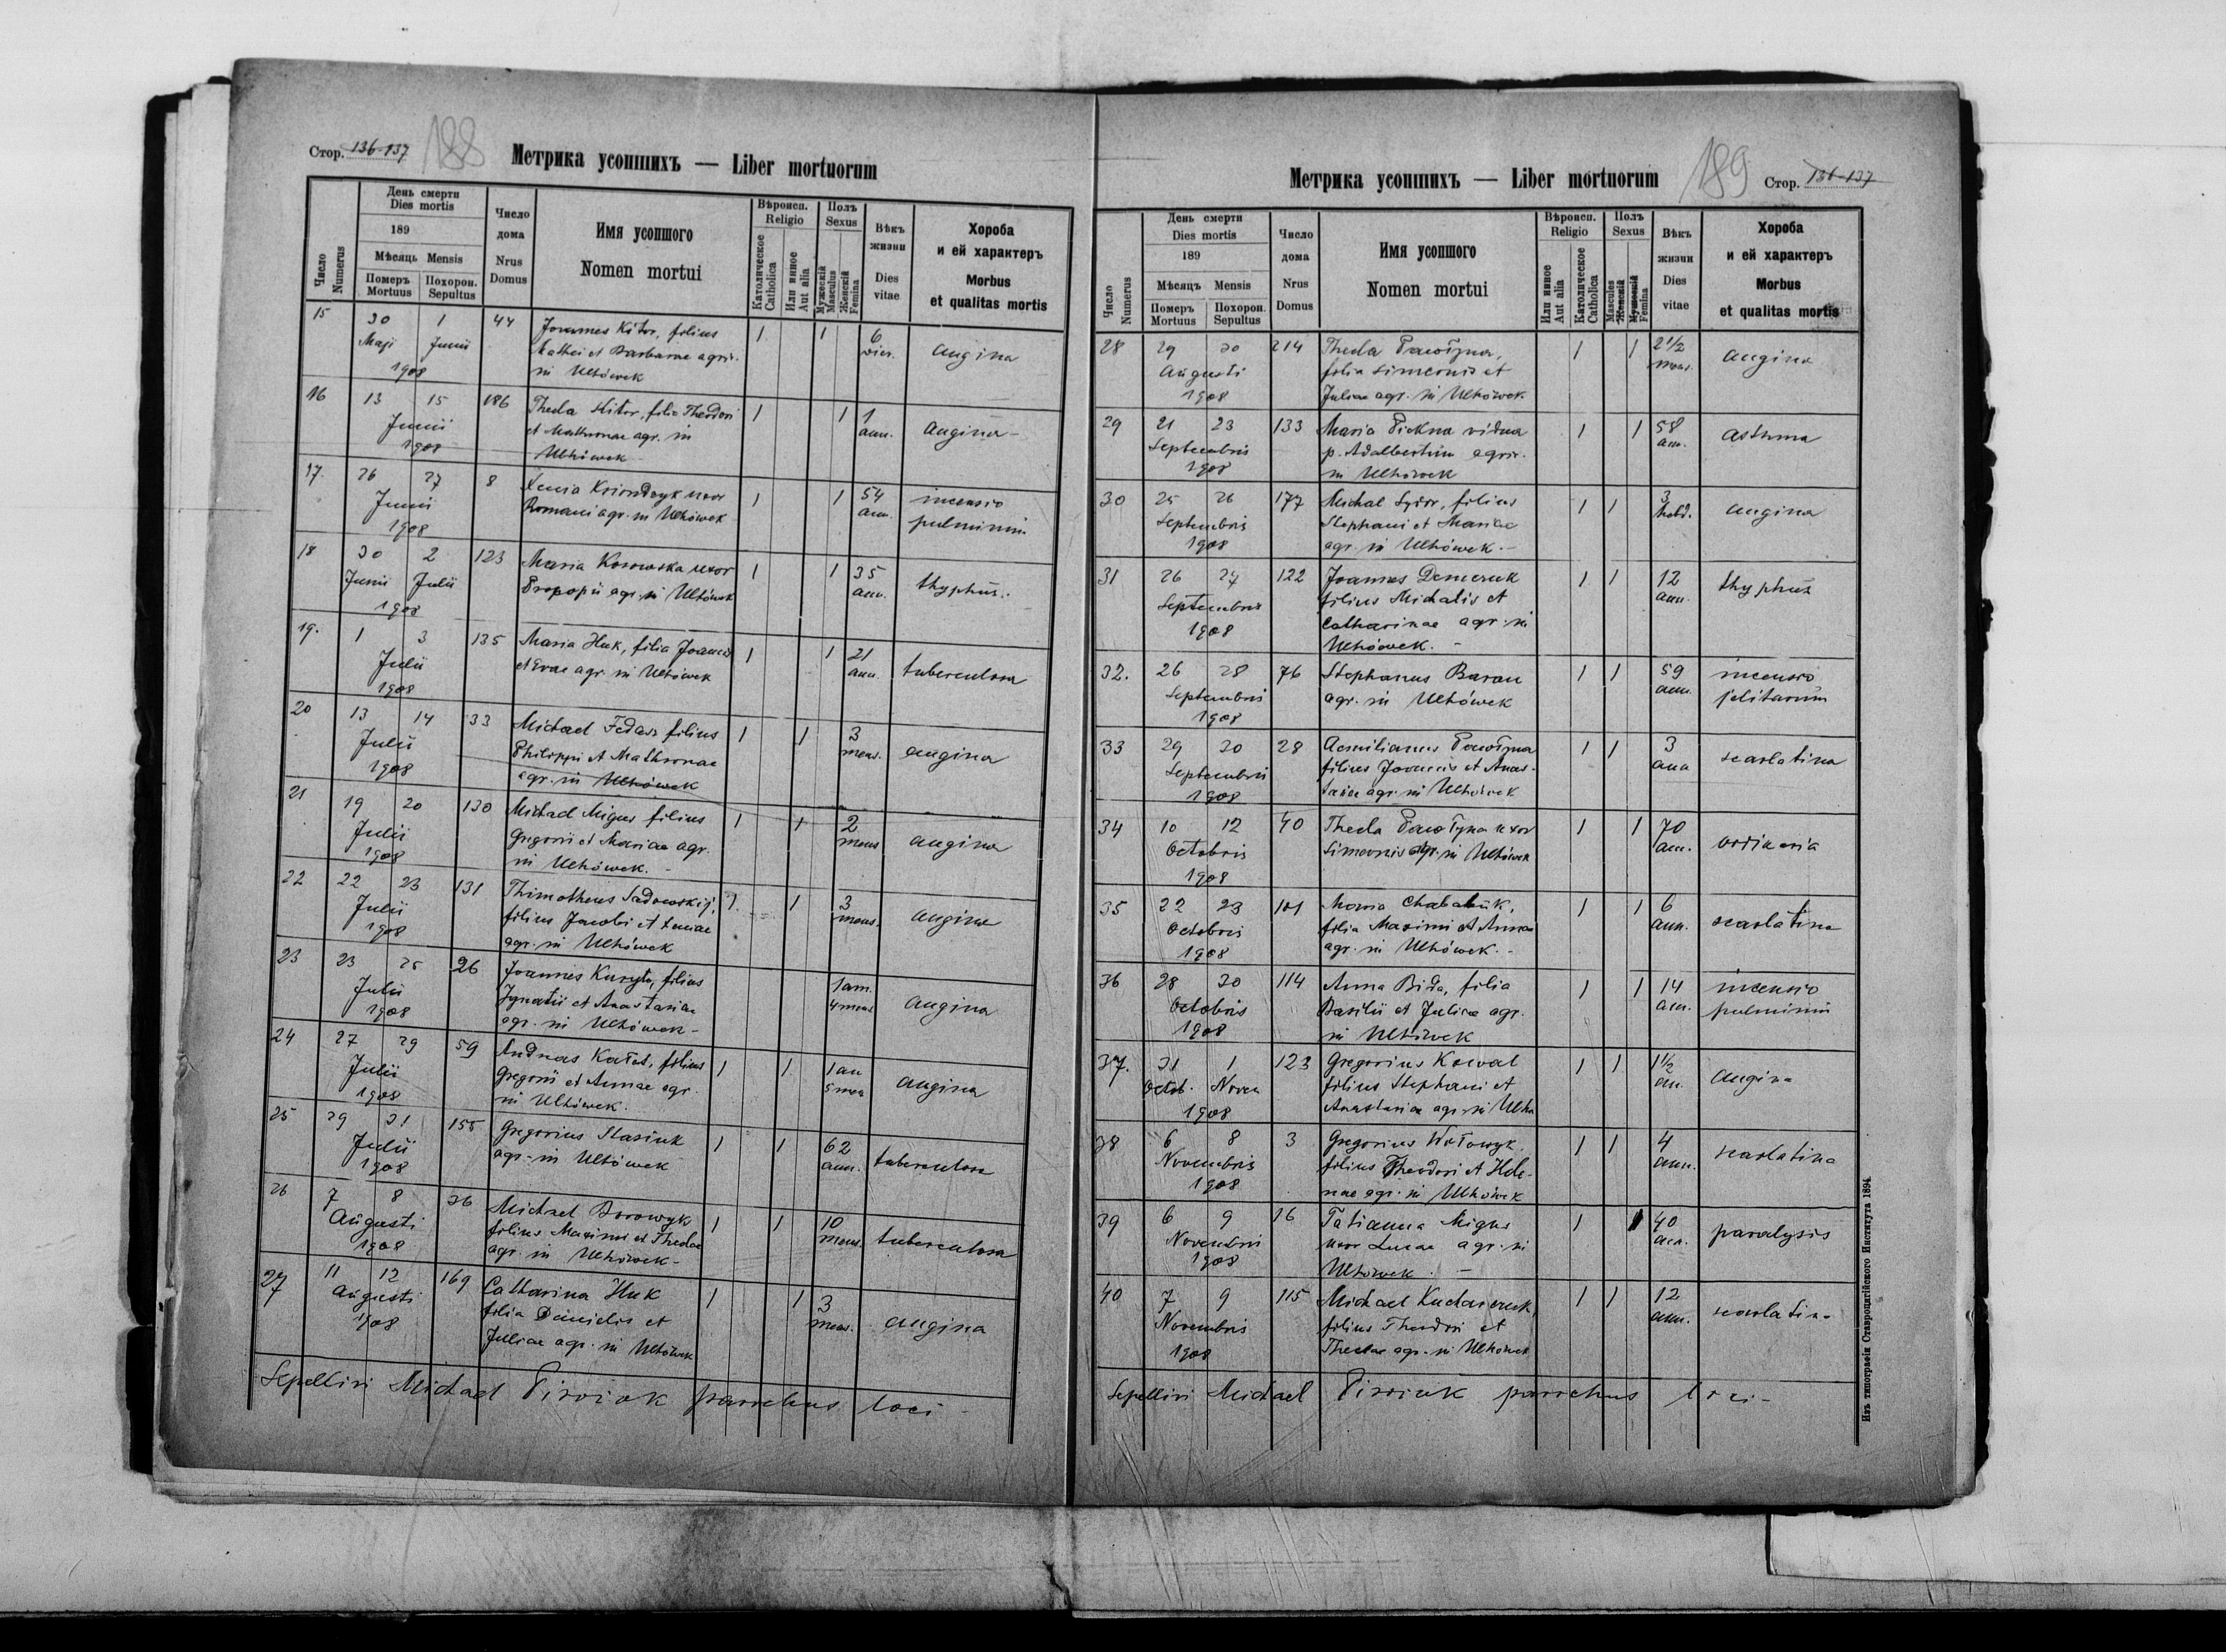 Стор. 136-137
188
Метрика усопшихъ — Liber mortuorum
Число Numerus
День смерти Dies mortis
189
Мѣсяць Mensis
Померъ Mortuus
Похорон. Sepultus
Число дома Nrus Domus
Имя усопшого
Nomen mortui
Вѣроисп. Religio
Католическое Catholica
Или инное Aut alia
Полъ Sexus
Мужескій Masculus
Женскій Femina
Вѣкъ жизни Dies vitae
Хороба и ей характеръ
Morbus et qualitas mortis
15 30 1 44 Joannes Kitor, filius 1 1 6
Maji Junii Mathei et Barbarae agric. dier. angina
1908 in Uhhówek
16 13 15 186 Thecla Kitor, filia Theodori 1 1 1
Junii et Mathronae agr. in ann. angina
1908 Uhhówek
17. 26 27 8 Xenia uxor 1 1 54 incensio
Junii Romani agr. in Uhhówek ann. pulminum
1908
18 30 2 123 Maria Kosowska uxor 1 1 35
Junii Julii Propopii agr. in Uhhówek ann. thyphus.
1908
19. 1 3 135 Maria Huk, filia Joannis 1 1 21
Julii et Evae agr. in Uhhówek ann. tuberculosa
1908
20 13 14 33 Michael Fedasz filius 1 1 3
Julii Philippi et Mathronae mens. angina
1908 agr. in Uhhówek
21 19 20 130 Michael Migus filius 1 1 2
Julii Gregorii et Mariae agr. mens angina
1908 in Uhhówek.
22 22 23 131 Thimotheus Sadowskij, 1. 1 3
Julii filius Jacobi et Xeniae mens. angina
1908 agr. in Uhhówek
23 23 25 26 Joannes Kuryło, filius 1 ann.
Julii Ignatii et Anastasiae 4 mens angina
1908 agr. in Uhhówek -
24 27 29 59 Andreas Kałat, filius 1 1 1 an
Julii Gregorii et Annae agr. 5 men angina
1908 in Uhhówek.
25 29 31 155 Gregorius Stasiuk 1 1 62
Julii agr. in Uhhówek ann. tuberculosa
1908
26 7 8 36 Michael Borowyk 1 1 10
Augusti filius Maximi et Theclae mens. tuberculosa
1908 agr. in Uhhówek -
27 11 12 169 Catharina Huk 1 1 3
Augusti filia Danielis et mens. angina
1908 Juliae agr. in Uhhówek
Sepelivi Michael Pirożok parochus loci -
Метрика усопшихъ — Liber mortuorum
189
Стор. 136-137
Число Numerus
День смерти Dies mortis
189
Мѣсяцъ Mensis
Померъ Mortuus
Похорон. Sepultus
Число дома Nrus Domus
Имя усопшого
Nomen mortui
Вѣроисп. Religio
Или инное Aut alia
Католическое Catholica
Полъ Sexus
Mascules Женскій
Мужескій Femina
Вѣкъ жизни Dies vitae
Хороба и ей характеръ
Morbus et qualitas mortis
28 29 30 214 Thecla Pawłyna, 1 1 2 1/2
Augusti filia Simeonis et mens. angina
1908 Juliae agr. in Uhhówek
29 21 23 133 Maria Piekna vidua 1 1 58
Septembris p. Adalbertum agric. ann. asthma
1908 in Uhhówek
30 25 26 177 Michal Sydor, filius 1 1 3
Septembris Stephani et Mariae hebd. angina
1908 agr. in Uhhówek. -
31 26 27 122 Joannes Demczuk 1 1 12
Septembris filius Michalis et ann. thyphus
1908 Catharinae agr. in
Uhhówek. -
32. 26 28 76 Stephanus Baran 1 1 59 incensio
Septembris agr. in Uhhówek ann. jelitarum
1908
33 29 30 28 Aemilianus Pawłyna 1 1 3
Septembris filius Joannis et Anas- ann scarlatina
1908 tasiae agr. in Uhhówek
34 10 12 40 Thecla Pawłyna uxor 1 1 70
Octobris Simeonis agr. in Uhhówek ann.
1908
35 22 23 101 Maria Chababuk, 1 1 6
Octobris filia Maximi et Annae ann. scarlatina
1908 agr. in Uhhówek. -
36 28 30 114 Anna Bida, filia 1 1 14 incensio
Octobris Basilii et Juliae agr. ann. pulminum
1908 in Uhhówek
37. 31 1 123 Gregorius Kowal 1 1 1 1/2
Octob. Novem filius Stephani et an. angina
1908 Anastasiae agr. in Uhhó
38 6 8 3 Gregorius Wołowyk. 1 1 4
Novembris filius Theodori et Hele- ann. scarlatina
1908 nae agr. in Uhhówek
39 6 9 16 Tatianna Migus 1 1 40
Novembris uxor Lucae agr. in ann. paralysis
1908 Uhhówek. -
40 7 9 115 Michael Kucharczuk, 1 1 12
Novembris filius Theodori et ann. scarlatina
1908 Theclae agr. in Uhhówek
Sepelivi Michael Pirożok parochus loci -
Изъ типографіи Ставропигійского Института 1894.